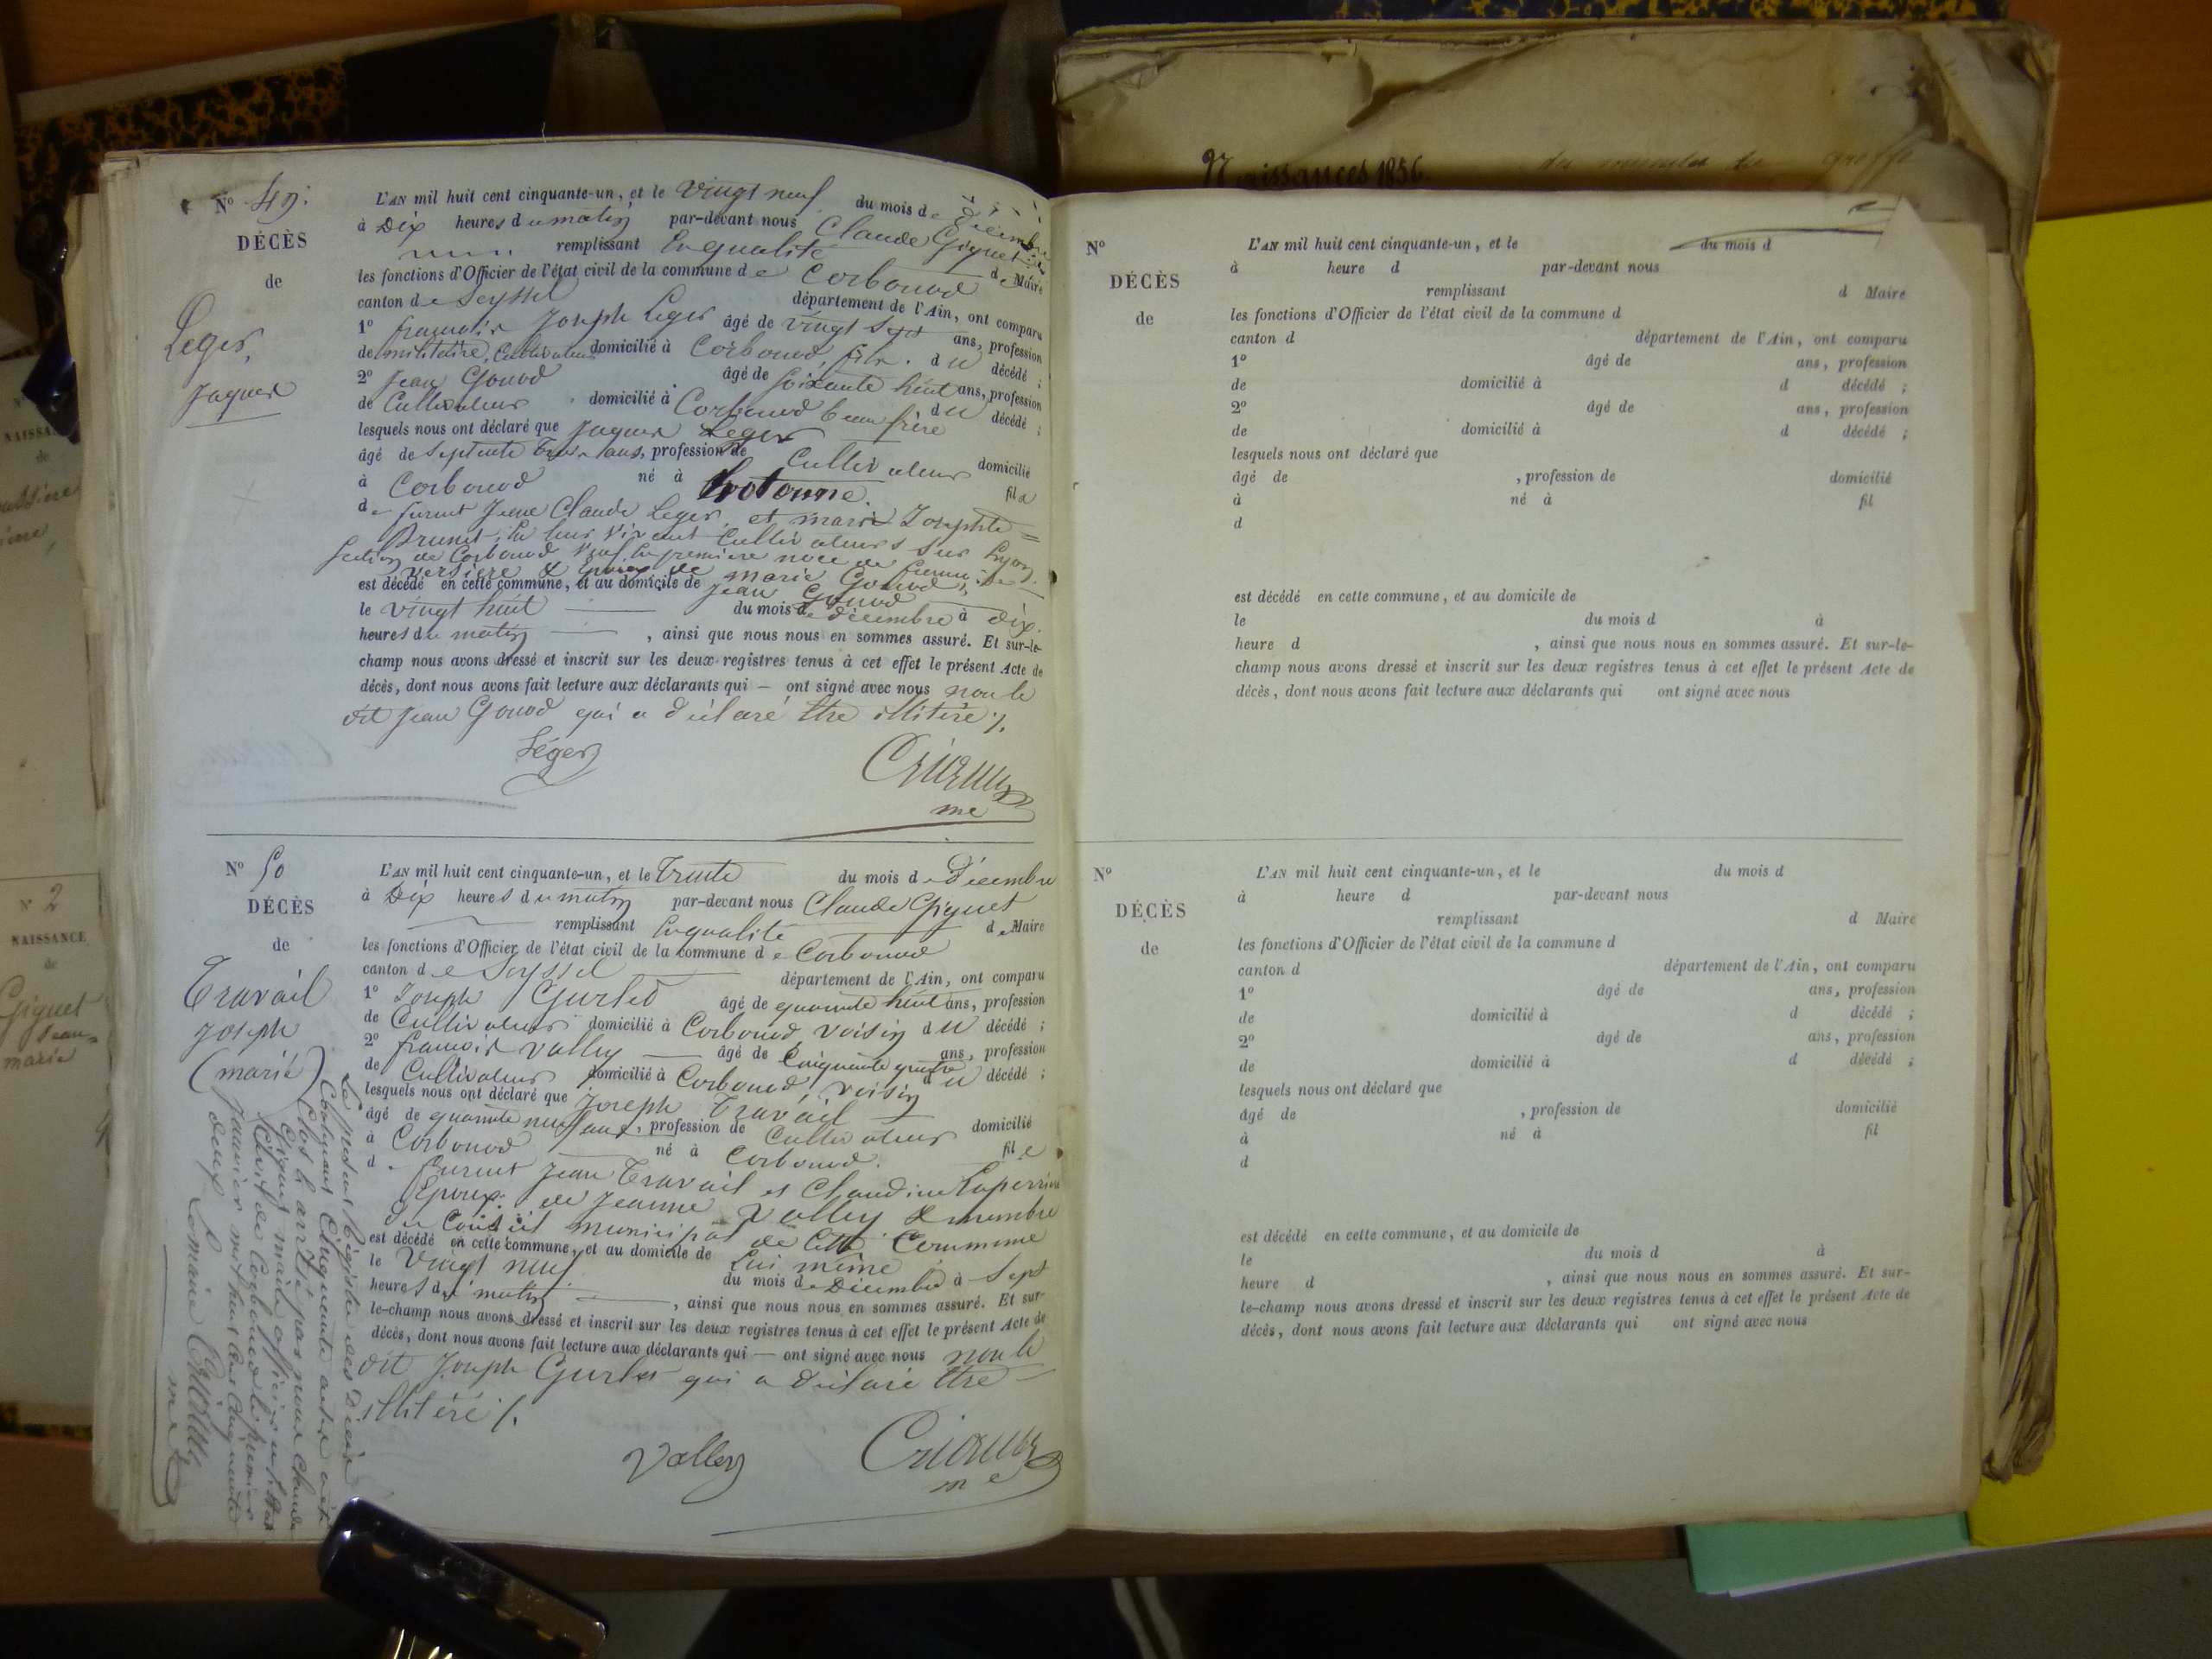 Naissances 1856.
N° 49.
DÉCÈS
de
Leger,
Jaques
L'AN mil huit cent cinquante-un, et le vingt neuf du mois de décembre
à Dix heures du matin par-devant nous Claude Giguet
remplissant En qualité de Maire
les fonctions d'Officier de l'état civil de la commune de Corbonod
canton de Seyssel département de l'Ain, ont comparu
1° françois Joseph Leger âgé de vingt sept ans, profession
de militaire, Cultivateur domicilié à Corbonod, du décédé ;
2° Jean Gonod âgé de soixante huit ans, profession
de Cultivateur domicilié à Corbonod beau frère du décédé ;
lesquels nous ont déclaré que Jaques Leger
âgé de septente trois ans, profession de Cultivateur domicilié
à Corbonod né à fils
de furent Jean Claude Leger, et marie Josephte
Brunet, En leur vivant Cultivateurs sur
section de Corbonod veuf En première noce de
& Epoux de marie Gonod,
est décédé en cette commune, et au domicile de Jean Gonod
le vingt huit du mois de décembre à dix
heures du matin , ainsi que nous nous en sommes assuré. Et sur-le-
champ nous avons dressé et inscrit sur les deux registres tenus à cet effet le présent Acte de
décès, dont nous avons fait lecture aux déclarants qui — ont signé avec nous non le
dit Jean Gonod qui a déclaré être illitéré ./.
Léger
me
N° 50
DÉCÈS
de
Travail
Joseph
(marié)
L'AN mil huit cent cinquante-un, et le Trente du mois de Décembre
à Dix heures du matin par-devant nous Claude Giguet
remplissant En qualité de Maire
les fonctions d'Officier de l'état civil de la commune de Corbonod
canton de Seyssel département de l'Ain, ont comparu
1° Joseph Gurlet âgé de quarante huit ans, profession
de Cultivateur domicilié à Corbonod, voisin du décédé ;
2° françois Valley âgé de Cinquante quatre ans, profession
de Cultivateur domicilié à Corbonod, voisin du décédé ;
lesquels nous ont déclaré que Joseph Travail
âgé de quarante neuf ans, profession de Cultivateur domicilié
à Corbonod né à Corbonod. fils
de furent Jean Travail et Claudine Laperrine
Epoux de Jeanne Valley & membre
du Conseil municipal de Cette Commune
est décédé en cette commune, et au domicile de Lui même
le Vingt neuf du mois de Décembre à sept
heures du matin , ainsi que nous nous en sommes assuré. Et sur-
le-champ nous avons dressé et inscrit sur les deux registres tenus à cet effet le présent Acte de
décès, dont nous avons fait lecture aux déclarants qui — ont signé avec nous non le
dit Joseph Gurlet qui a déclaré être
illitéré ./.
Valley
me
Le présent Régistre des Décès
Contenant Cinquante actes a été
Clos & arrêté par nous Claude
Giguet maire officier de l'état
Civil de Corbonod le premier
Janvier mil huit Cent Cinquante
deux Le maire
me
N°
DÉCÈS
de
L'AN mil huit cent cinquante-un, et le du mois d
à heure d par-devant nous
remplissant d Maire
les fonctions d'Officier de l'état civil de la commune d
canton d département de l'Ain, ont comparu
1° âgé de ans, profession
de domicilié à d décédé ;
2° âgé de ans, profession
de domicilié à d décédé ;
lesquels nous ont déclaré que
âgé de , profession de domicilié
à né à fil
d
est décédé en cette commune, et au domicile de
le du mois d à
heure d , ainsi que nous nous en sommes assuré. Et sur-le-
champ nous avons dressé et inscrit sur les deux registres tenus à cet effet le présent Acte de
décès, dont nous avons fait lecture aux déclarants qui ont signé avec nous
N°
DÉCÈS
de
L'AN mil huit cent cinquante-un, et le du mois d
à heure d par-devant nous
remplissant d Maire
les fonctions d'Officier de l'état civil de la commune d
canton d département de l'Ain, ont comparu
1° âgé de ans, profession
de domicilié à d décédé ;
2° âgé de ans, profession
de domicilié à d décédé ;
lesquels nous ont déclaré que
âgé de , profession de domicilié
à né à fil
d
est décédé en cette commune, et au domicile de
le du mois d à
heure d , ainsi que nous nous en sommes assuré. Et sur-
le-champ nous avons dressé et inscrit sur les deux registres tenus à cet effet le présent Acte de
décès, dont nous avons fait lecture aux déclarants qui ont signé avec nous
N° 2
NAISSANCE
de
Giguet
Jean-
marie